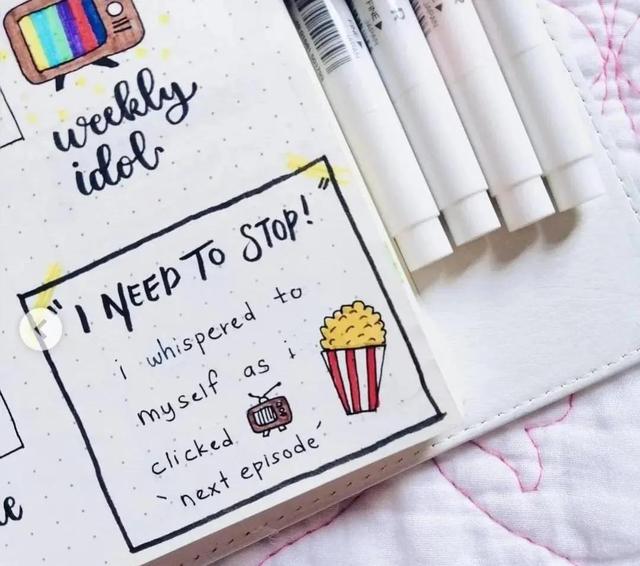 weekly
idol
"I NEED TO STOP!"
i whispered to
myself as i
clicked
`next episode´
FINE
FINE